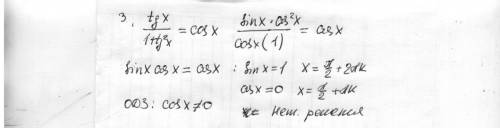 3. tg x / 1+tg²x = cos x   sin x · cos²x / cos x (1) = cos x
sin x cos x = cos x : sin x = 1   x = π/2 + 2πk
cos x = 0   x = π/2 + πk
ОДЗ: cos x ≠ 0   нет решения